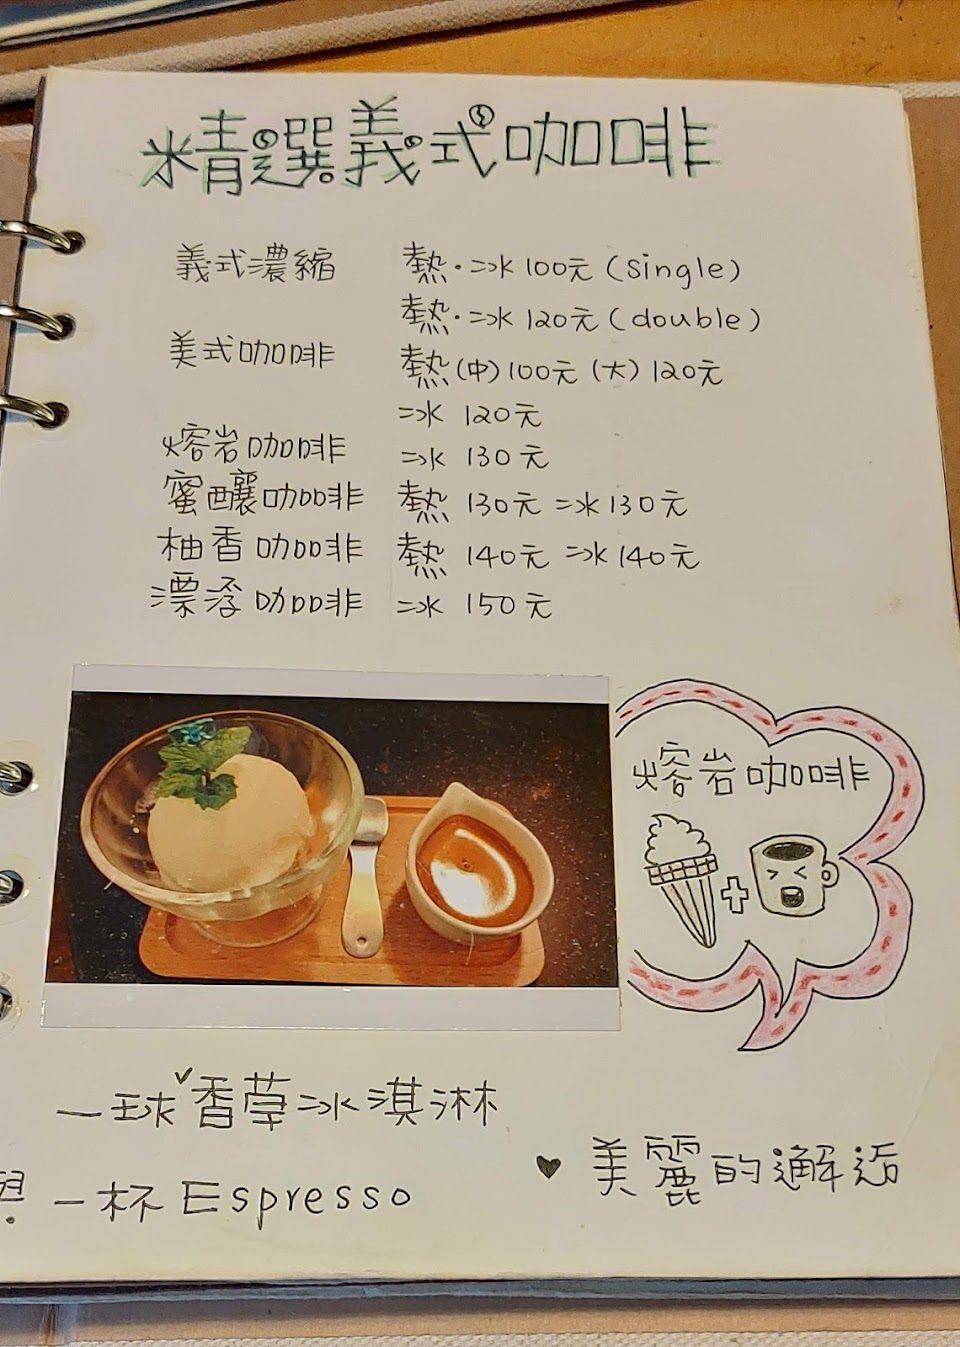 精選義式咖啡
義式濃縮 熱·冰 100元 (single)
熱·冰 120元 (double)
美式咖啡 熱(中)100元 (大) 120元
冰 120元
熔岩咖啡 冰 130元
蜜釀咖啡 熱 130元 冰130元
柚香咖啡 熱 140元 冰140元
漂浮咖啡 冰 150元
熔岩咖啡
一球香草冰淇淋
與一杯 Espresso
♥ 美麗的邂逅